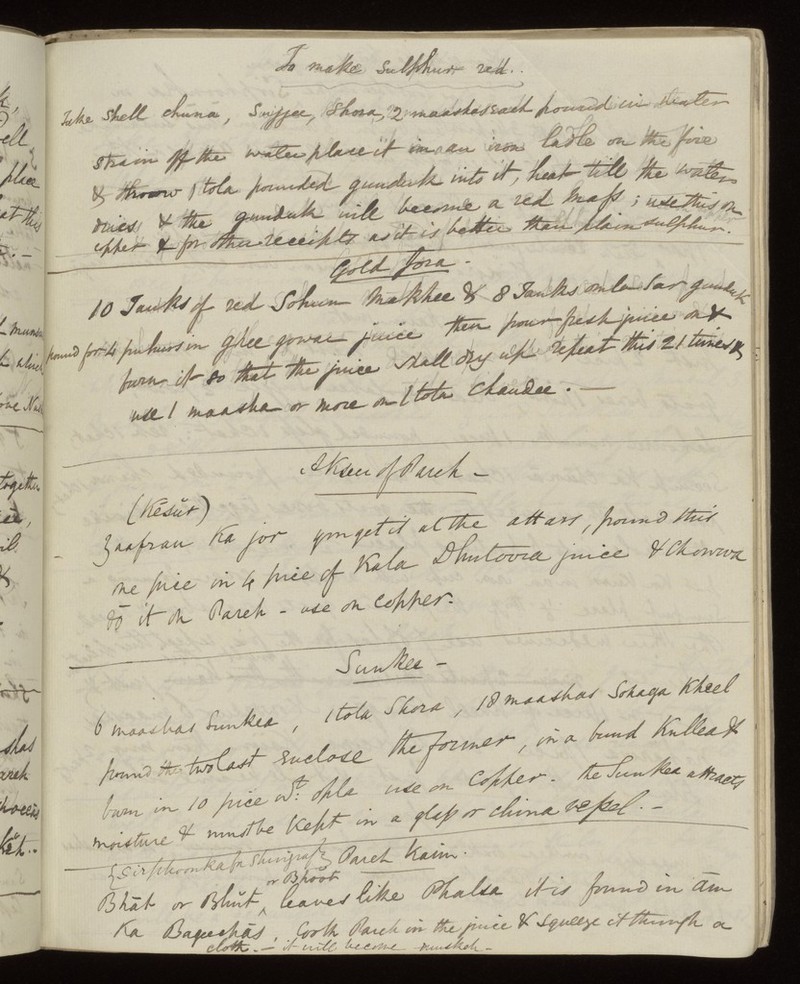 To make sulphur red.
Take Shell chuna, Sujjee, Shora, 2 maashas each pound in water
strain off the water place it in an iron ladle on the fire
& throw 1 tola pounded gunduk into it, heat till the water
dries & the gunduk will become a red mass; use this on
copper & for other receipts as it is better than plain sulphur.
Gold Jora -
10 Tanks of red Sohun Makhee & 8 Tanks omla Sar gunduk
pound for 4 puhurs in ghee gowar juice then pour fresh juice on &
burn it so that the juice shall dry up repeat this 21 times &
use 1 maasha or more on 1 tola Chandee. -
Akseer of Pareh -
(Késŭr)
Zaafran ka jor you get it at the attars, pound this
one pice in 4 pice of Kala Dhutoora juice & Chowwa
do it on Pareh - use on Copper.
Sunkea -
6 maashas Sunkea, 1 tola Shora, 18 maashas Sohaga Kheel
pound the two last enclose the former, in a bund Kullea &
burn in 10 pice wt. opla use on Copper. the Sunkea attracts
moisture & must be kept in a glass or china vessel. -
Pareh Kaim.
or Bhoot
Bhāt or Bhŭt, leaves like Phalsa it is found in ām
ka Bageechās, Cook Pareh in the juice & squeeze it through a
cloth. - it will become muskeh -